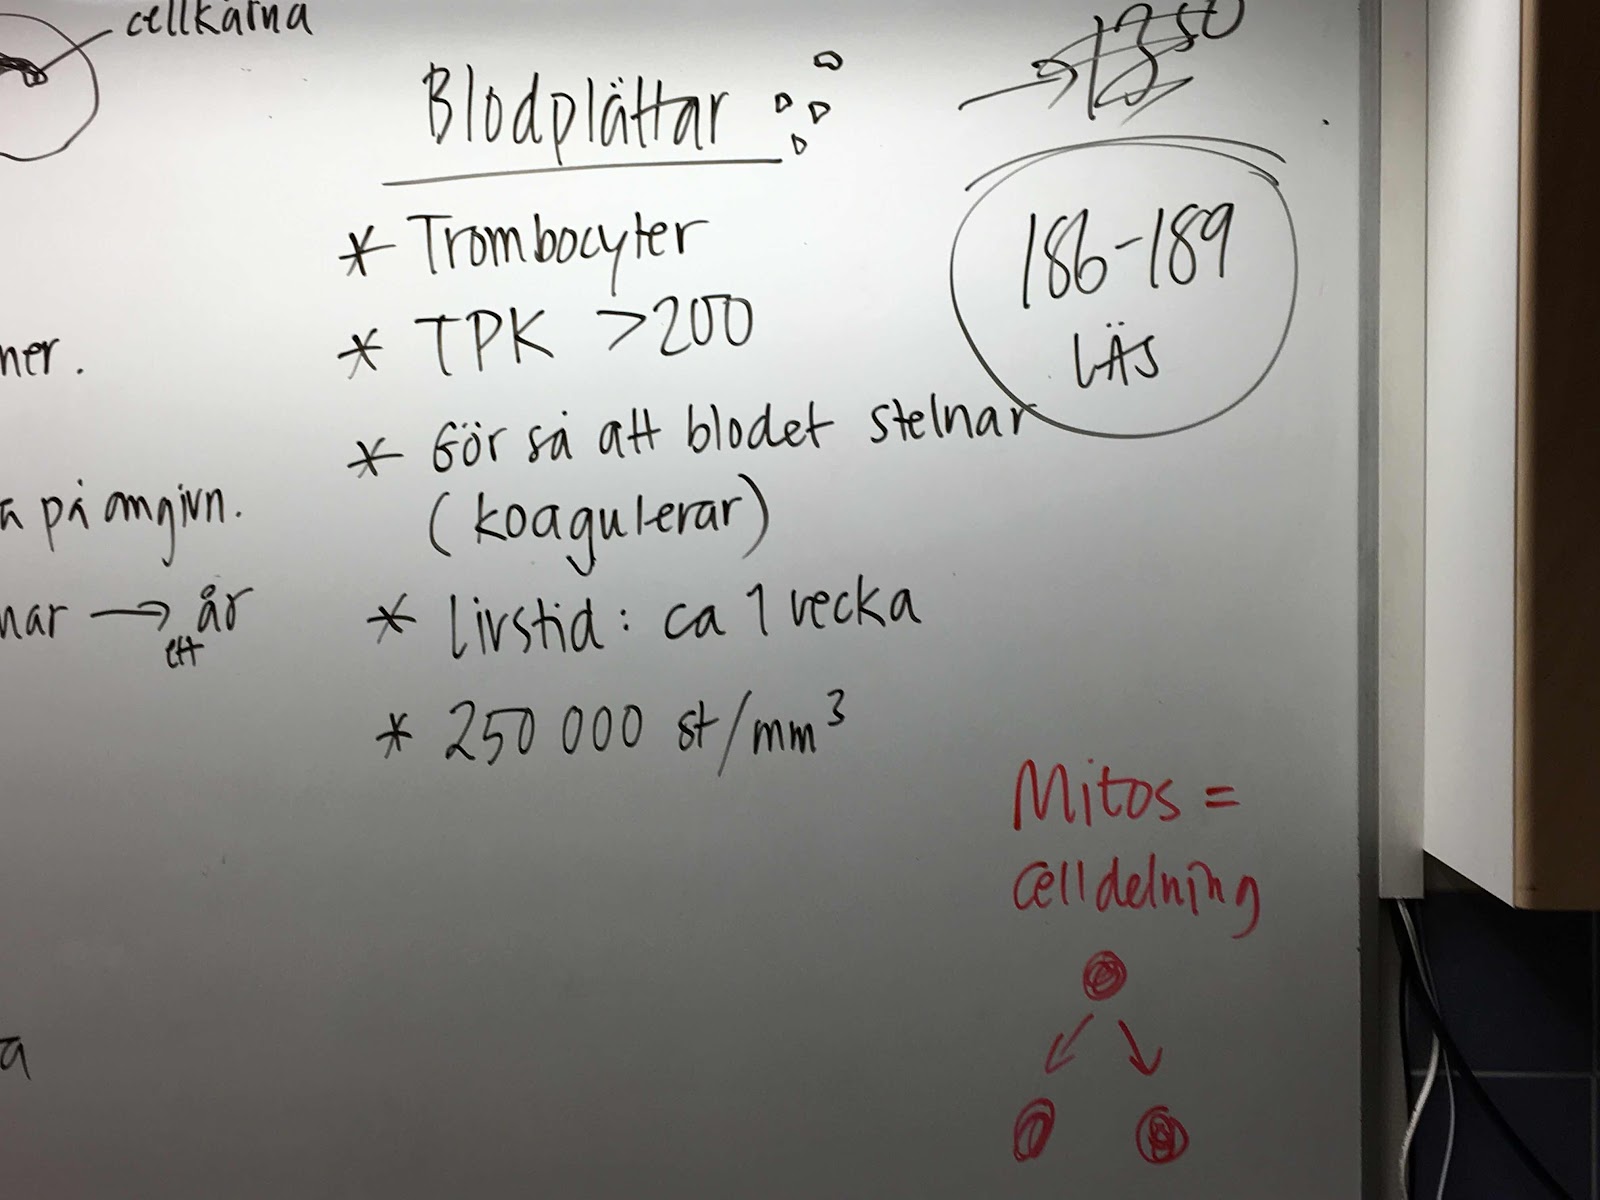 cellkärna
Blodplättar
* Trombocyter
* TPK >200
* Gör så att blodet stelnar
(koagulerar)
* Livstid: ca 1 vecka
* 250 000 st/mm³
186-189
LÄS
ner.
på omgivn.
nar → ett år
a
Mitos =
celldelning